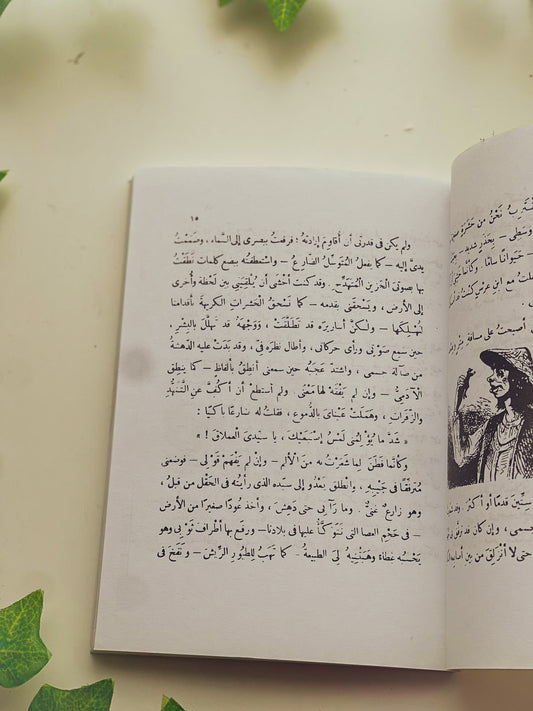 ١٥
ولم يكن فى قدرتى أن أُقاوِمَ إرادتَهُ ؛ فرفعتُ ببصرى إلى السَّماءِ ، وضَمَمْتُ
يدىَّ إليه – كما يفعلُ المُتَوسِّلُ الضَّارِعُ – واستعطفتُه ببضع كلمات نَطَقْتُ
بها بصوتىَ الحَزينِ المُتَهَدِّجِ . وقد كنت أخشَى أن يُلْقِيَنِى بين لَحْظة وأُخرى
إلى الأرضِ ، ويَسْحَقَنى بقدمه – كما نَسْحَقُ الحَشراتِ الكريهةَ بأقدامنا
لِنُهْلِكها – ولكنَّ أساريرَه قد تَطَلَّقَتْ ، ووَجْهَهُ قد تَهَلَّلَ بالبِشْرِ ،
حين سمِع صَوْتى ورأى حركاتى ، وأطال نظرَه فىَّ ، وقد بَدَتْ عليه الدَّهشةُ
من ضآلةِ جسمى ، واشتد عجَبُه حين سمعنى أَنطِقُ بألفاظ – كما ينطِق
الآدَمِىُّ – وإن لم يَفْقَهْ لها مَعْنًى . ولم أستطعْ أن أكُفَّ عن التَّنَهُّدِ
والزَّفَراتِ ، وهَمَلَتْ عَيْناىَ بالدُّموع ، فقلتُ له ضارعًا باكيًا :
« شَدَّ ما يُؤْلِمُنى لَمْسُ إصْبَعَيْكَ ، يا سيِّدىَ العملاقَ ! »
وكأنَّما فَطَنَ لِما شَعَرْتُ به من الأَلمِ – وإنْ لم يَفْهَمْ قَوْلى – فوضعنى
مُتَرفِّقًا فى جَيْبِهِ ، وانْطلق يَعْدُو إلى سيِّده الذى رأيتُه فى الحَقْل من قبلُ ،
وهو زارِعٌ غنىٌّ . وما رَآنِى حتى دَهِشَ ، وأخذ عُودًا صغيرًا من الأرضِ
– فى حَجْمِ العصا التى نَتَوكَّأُ عليها فى بلادنا – ورفع بها أطْرافَ ثَوْبى وهو
يَحْسَبُه غطاءً وهَبَتْنِيهِ الطبيعةُ – كما تَهَبُ للِطيورِ الرِّيشَ – ونَفَخَ فى